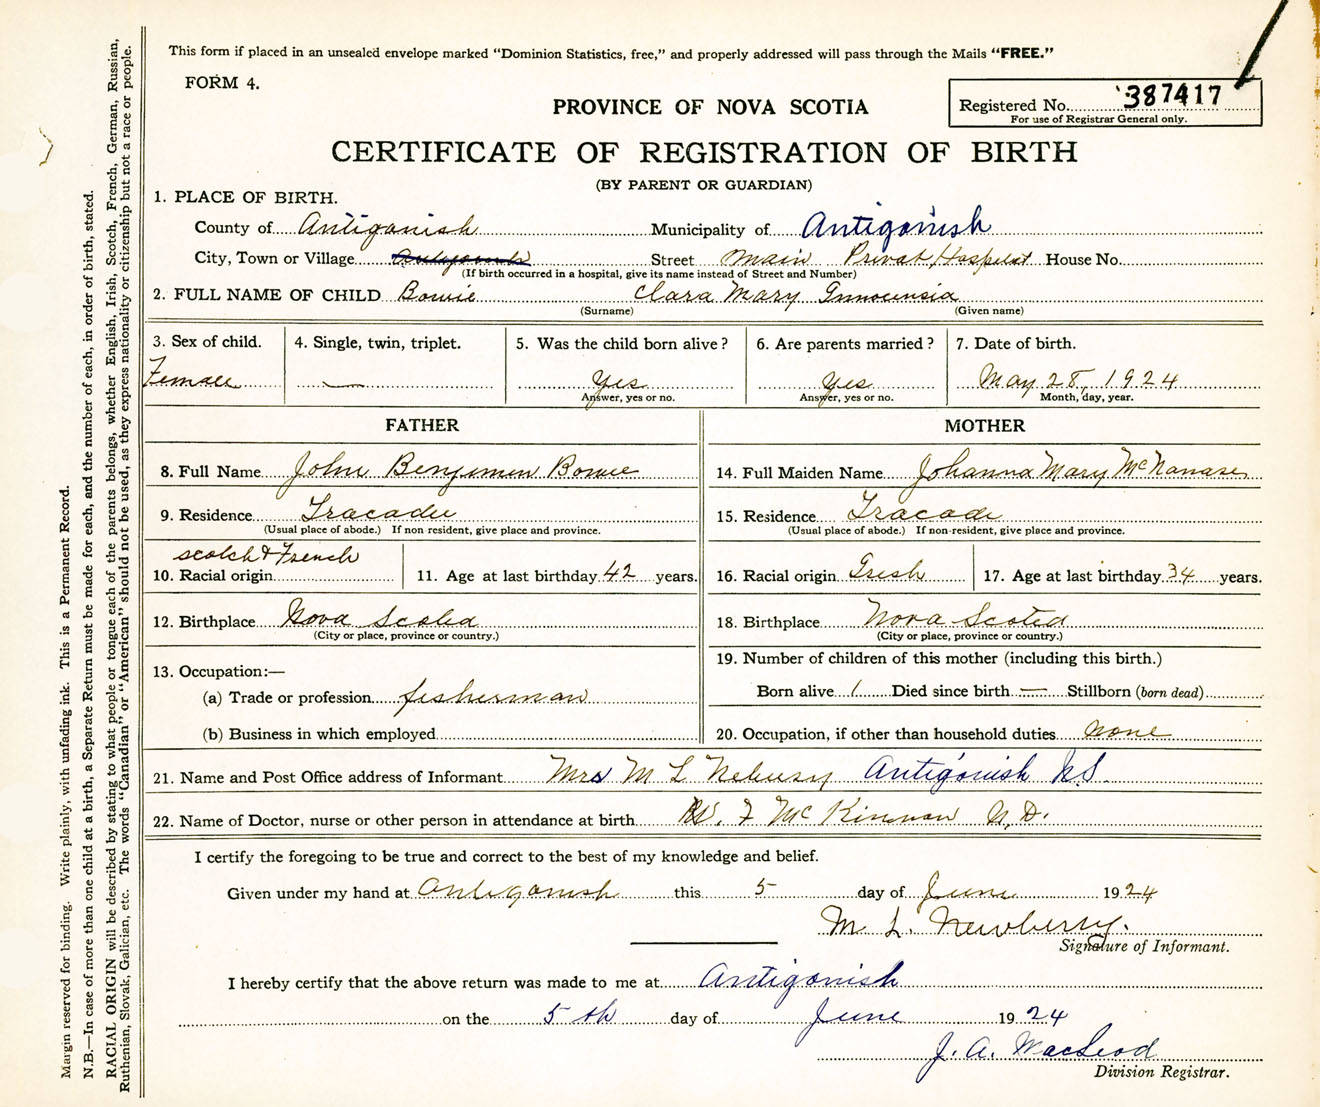 This form if placed in an unsealed envelope marked "Dominion Statistics, free," and properly addressed will pass through the Mails "FREE."
FORM 4.
Registered No. 387417
For use of Registrar General only.
PROVINCE OF NOVA SCOTIA
CERTIFICATE OF REGISTRATION OF BIRTH
(BY PARENT OR GUARDIAN)
1. PLACE OF BIRTH.
County of Antigonish Municipality of Antigonish
City, Town or Village Antigonish Street Main Privat Hospital House No.
(If birth occurred in a hospital, give its name instead of Street and Number)
2. FULL NAME OF CHILD Bowie Clara Mary Innocensia
(Surname) (Given name)
3. Sex of child. 4. Single, twin, triplet. 5. Was the child born alive? 6. Are parents married? 7. Date of birth.
Female — Yes Yes May 28, 1924
Answer, yes or no. Answer, yes or no. Month, day, year.
FATHER MOTHER
8. Full Name John Benjemen Bowie 14. Full Maiden Name Johanna Mary
9. Residence Tracadie 15. Residence Tracadi
(Usual place of abode.) If non-resident, give place and province. (Usual place of abode.) If non-resident, give place and province.
scotch & French
10. Racial origin 11. Age at last birthday 42 years. 16. Racial origin Irish 17. Age at last birthday 34 years.
12. Birthplace Nova Scotia 18. Birthplace Nova Scotia
(City or place, province or country.) (City or place, province or country.)
13. Occupation:— 19. Number of children of this mother (including this birth.)
(a) Trade or profession fisherman Born alive 1 Died since birth — Stillborn (born dead)
(b) Business in which employed 20. Occupation, if other than household duties none
21. Name and Post Office address of Informant Mrs M L Antigonish N.S.
22. Name of Doctor, nurse or other person in attendance at birth W. F McKinnon M.D.
I certify the foregoing to be true and correct to the best of my knowledge and belief.
Given under my hand at Antigonish this 5 day of June 1924
M L. Newberry.
Signature of Informant.
I hereby certify that the above return was made to me at Antigonish
on the 5th day of June 1924
J. A. MacLeod
Division Registrar.
Margin reserved for binding. Write plainly, with unfading ink. This is a Permanent Record.
N.B.—In case of more than one child at a birth, a Separate Return must be made for each, and the number of each, in order of birth, stated.
RACIAL ORIGIN will be described by stating to what people or tongue each of the parents belongs, whether English, Irish, Scotch, French, German, Russian,
Ruthenian, Slovak, Galician, etc. The words "Canadian" or "American" should not be used, as they express nationality or citizenship but not a race or people.